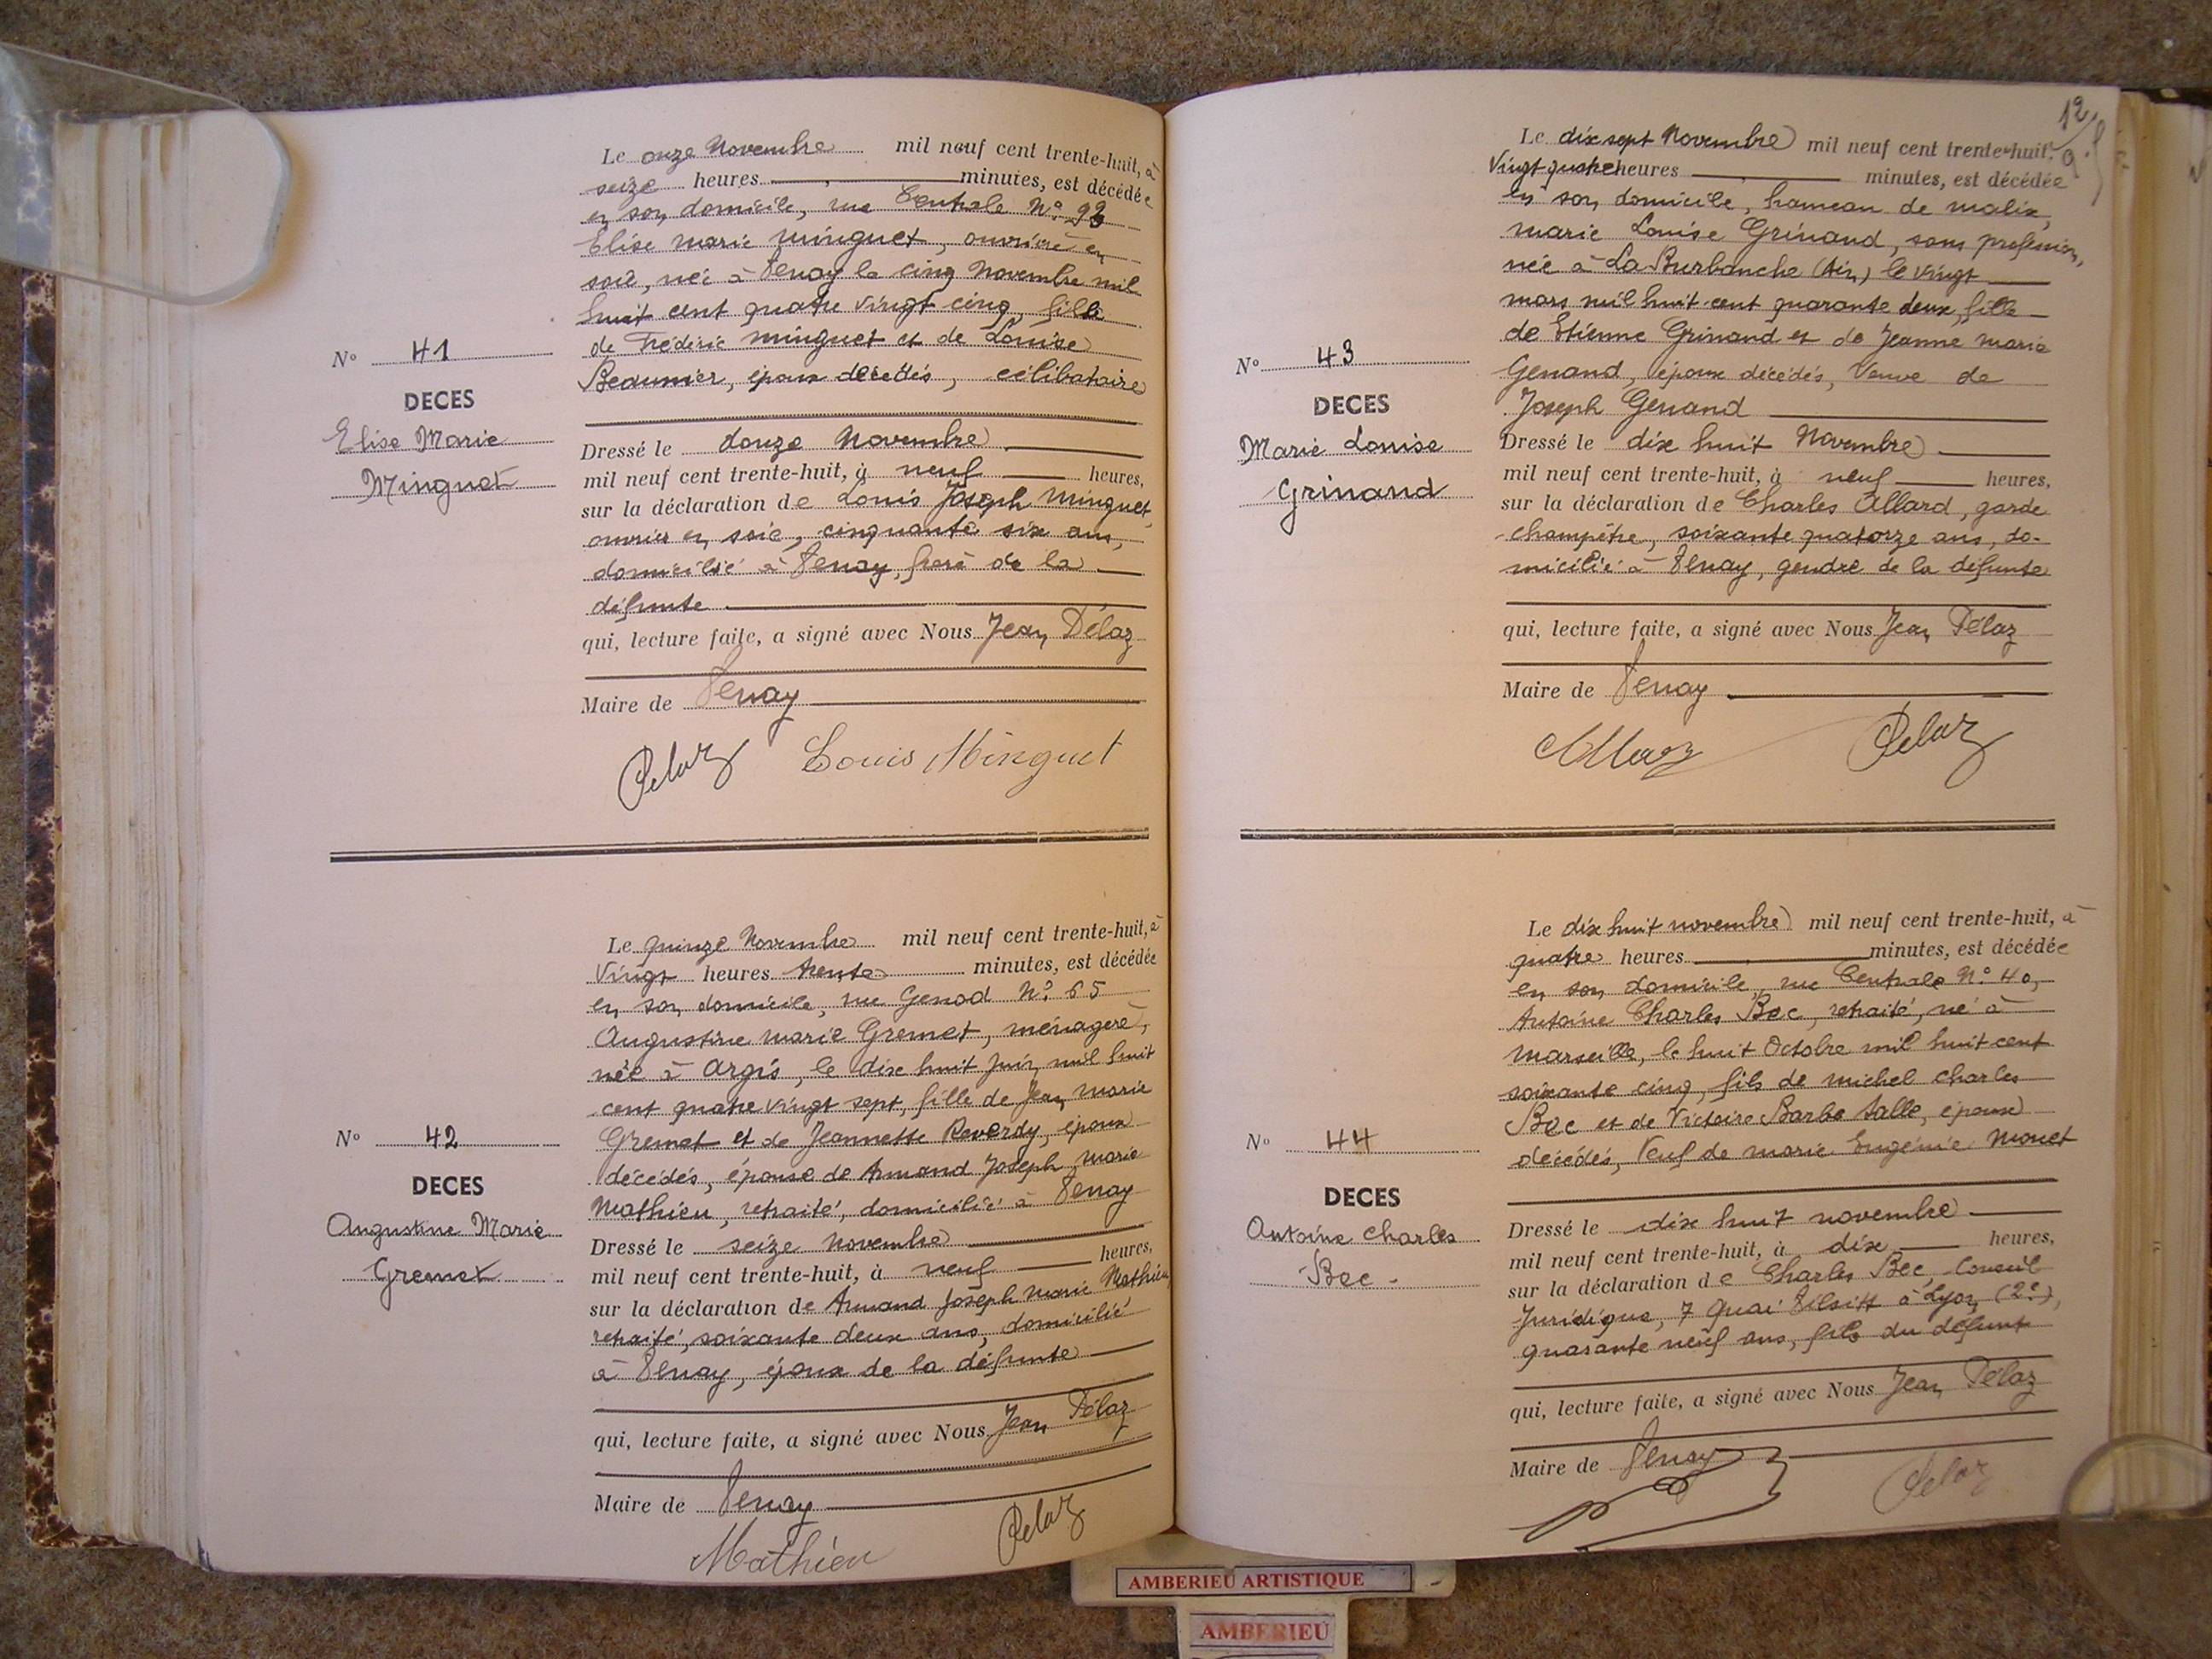 Le onze Novembre mil neuf cent trente-huit, à
seize heures minutes, est décédée
en son domicile, rue Centrale N° 93
Elise Marie Minguet, ouvrière en
soie, née à Tenay le cinq Novembre mil
huit cent quatre vingt cinq, fille
de Frédéric Minguet et de Louise
Beaumier, époux décédés, célibataire
N° 41
DECES
Elise Marie
Minguet
Dressé le douze Novembre
mil neuf cent trente-huit, à neuf heures,
sur la déclaration de Louis Joseph Minguet,
ouvrier en soie, cinquante six ans,
domicilié à Tenay, frère de la
défunte
qui, lecture faite, a signé avec Nous Jean Pélaz
Maire de Tenay
Pelaz Louis Minguet
Le quinze Novembre mil neuf cent trente-huit, à
Vingt heures trente minutes, est décédée
en son domicile, rue Genod N° 65
Augustine Marie Gremet, ménagère,
née à Argis, le dix huit Juin mil huit
cent quatre vingt sept, fille de Jean Marie
Gremet et de Jeannette Reverdy, époux
décédés, épouse de Armand Joseph Marie
Mathieu, retraité, domicilié à Tenay
N° 42
DECES
Augustine Marie
Gremet
Dressé le seize Novembre
mil neuf cent trente-huit, à neuf heures,
sur la déclaration de Armand Joseph Marie Mathieu,
retraité, soixante deux ans, domicilié
à Tenay, époux de la défunte
qui, lecture faite, a signé avec Nous Jean Pélaz
Maire de Tenay
Mathieu Pelaz
12
Le dix sept Novembre mil neuf cent trente-huit,
Vingt quatre heures minutes, est décédée
en son domicile, hameau de Malix,
Marie Louise Grinand, sans profession,
née à La Burbanche (Ain) le vingt
mars mil huit cent quarante deux, fille
de Etienne Grinand et de Jeanne Marie
Genand, époux décédés, Veuve de
Joseph Genand
N° 43
DECES
Marie Louise
Grinand
Dressé le dix huit Novembre
mil neuf cent trente-huit, à neuf heures,
sur la déclaration de Charles Allard, garde
champêtre, soixante quatorze ans, do-
micilié à Tenay, gendre de la défunte
qui, lecture faite, a signé avec Nous Jean Pélaz
Maire de Tenay
Pelaz
Le dix huit novembre mil neuf cent trente-huit, à
quatre heures minutes, est décédée
en son domicile, rue Centrale N° 40,
Antoine Charles Bec, retraité, né à
Marseille, le huit Octobre mil huit cent
soixante cinq, fils de Michel Charles
Bec et de Victoire Barbe Salle, époux
décédés, Veuf de Marie Eugénie Monet
N° 44
DECES
Antoine Charles
Bec.
Dressé le dix huit novembre
mil neuf cent trente-huit, à dix heures,
sur la déclaration de Charles Bec, Conseil
Juridique, 7 Quai Tilsitt à Lyon (2e),
quarante neuf ans, fils du défunt
qui, lecture faite, a signé avec Nous Jean Pélaz
Maire de Tenay
Pelaz
AMBERIEU ARTISTIQUE
AMBERIEU